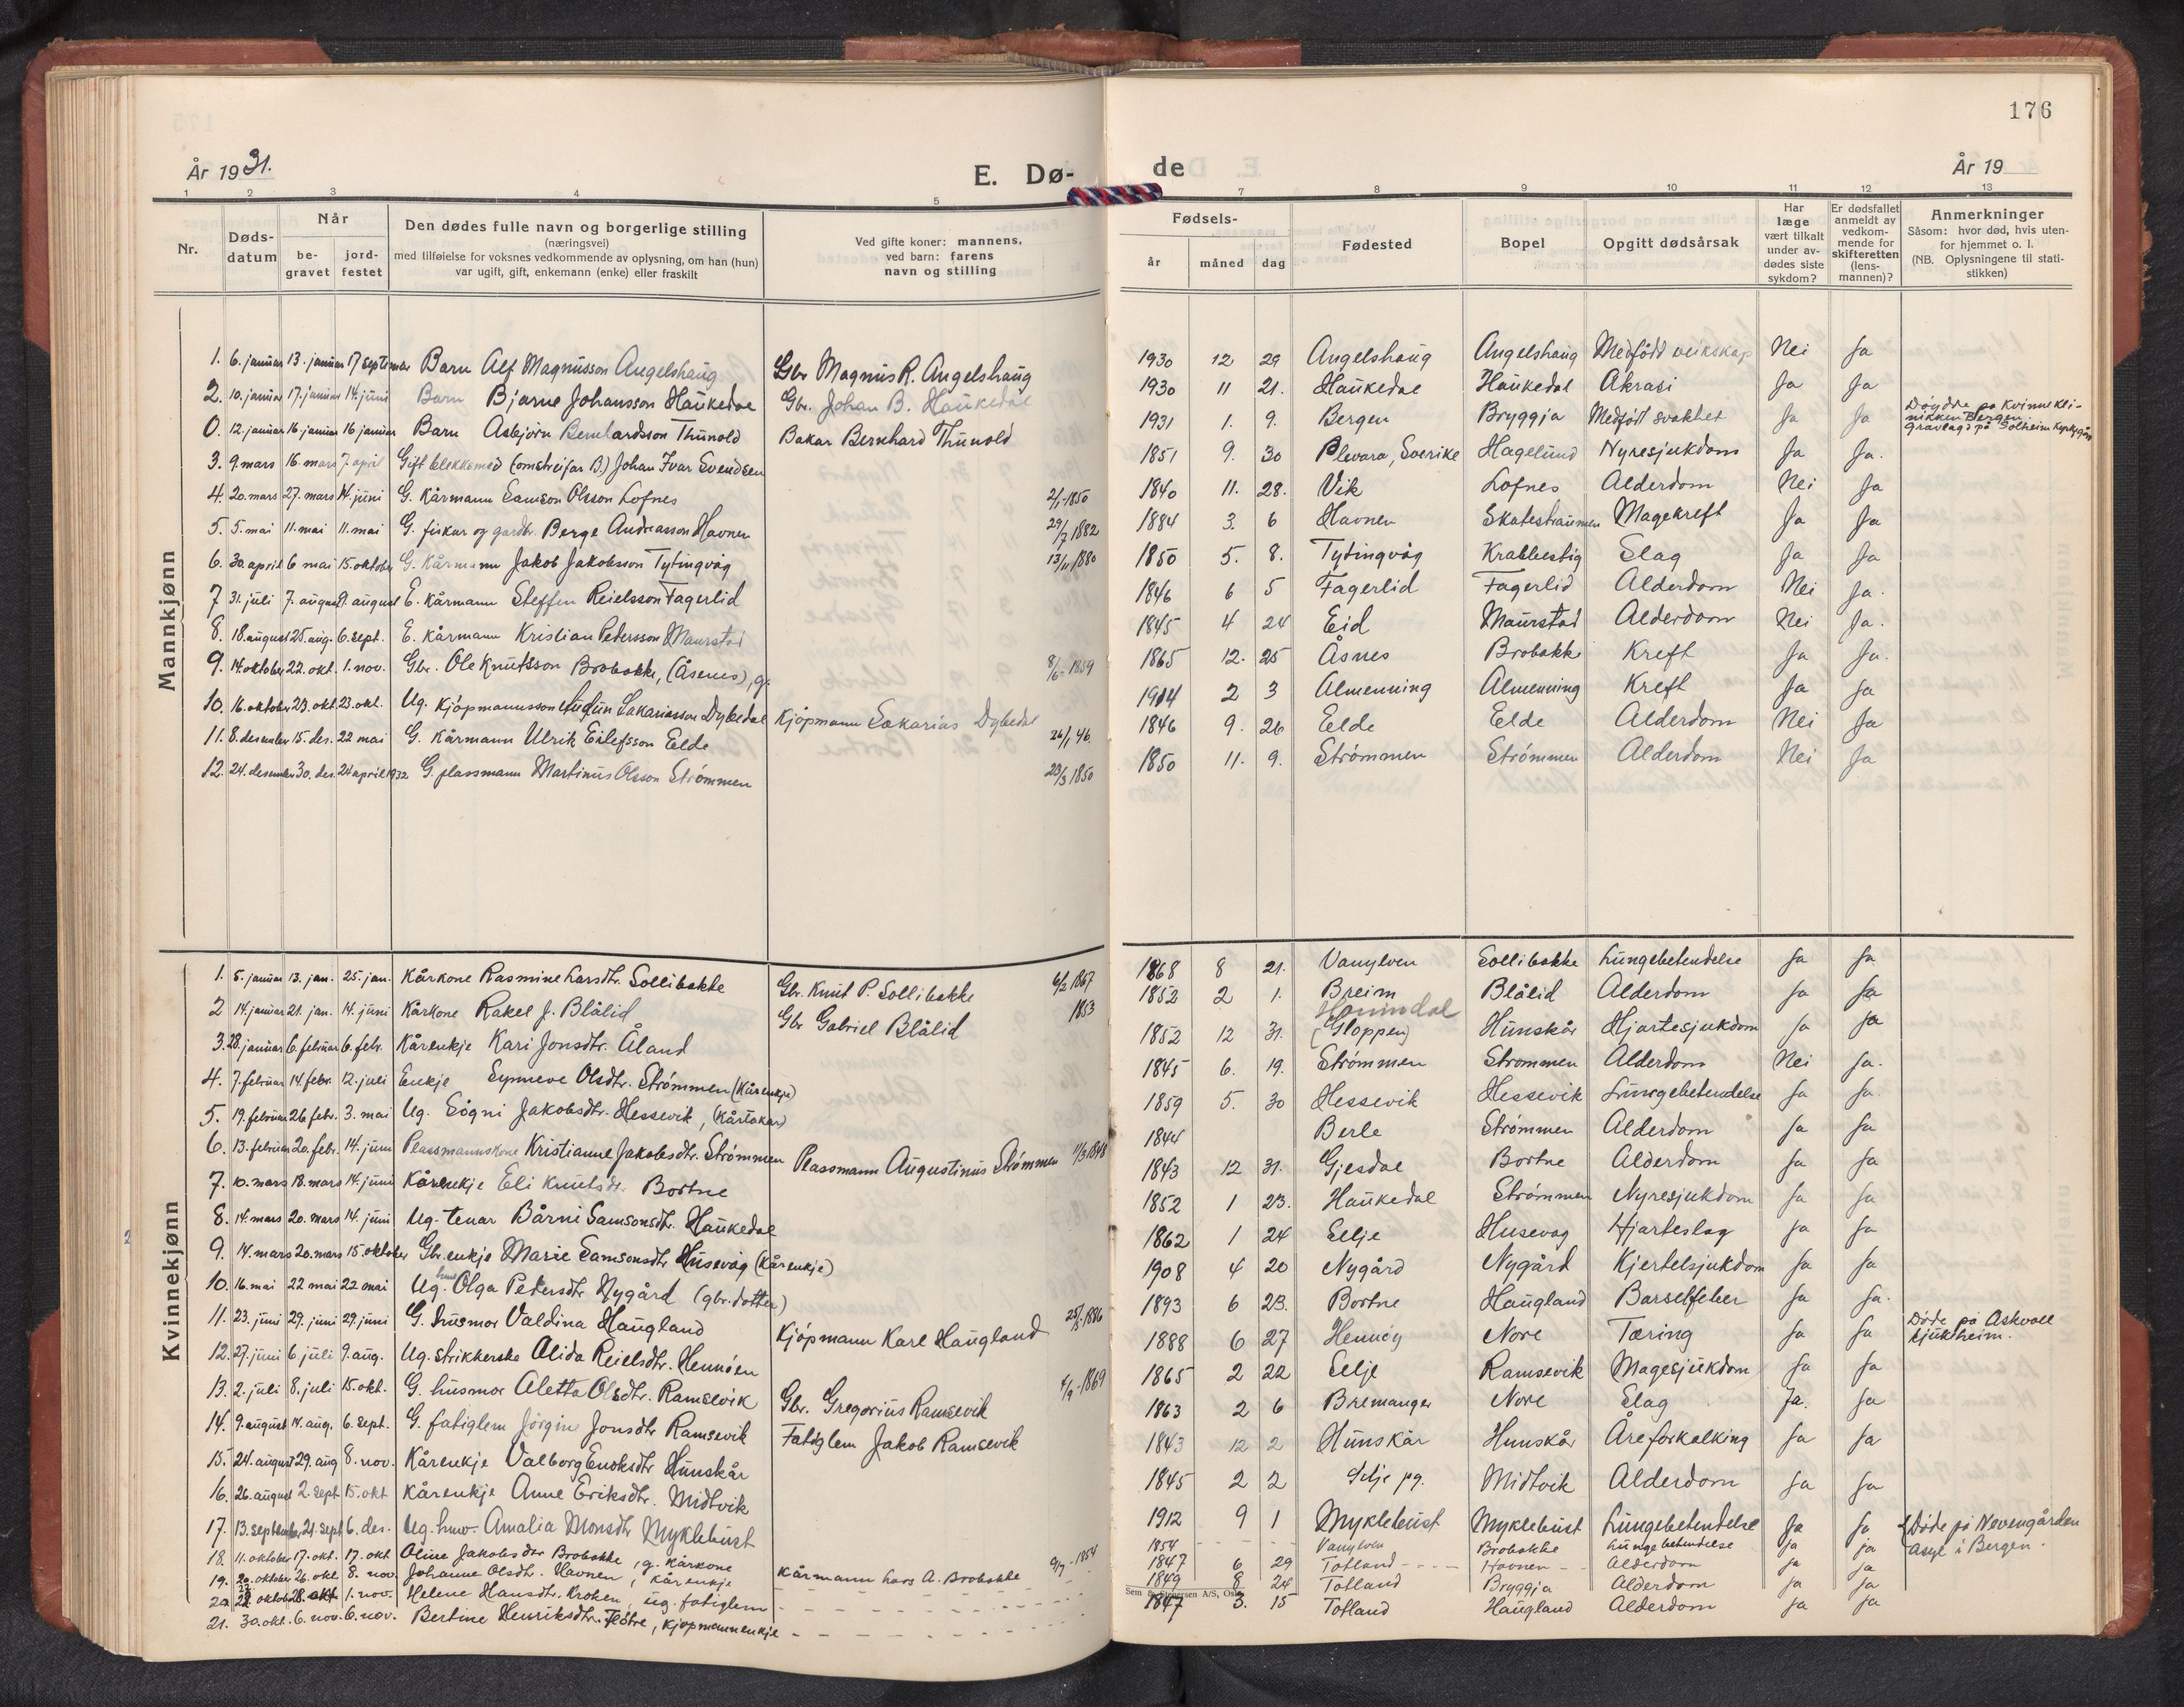 176
År 1931.
E. Dø-
de
År 19
1 2 3 4 5 7 8 9 10 11 12 13
Nr.
Døds-
datum
Når
be-
gravet
jord-
festet
Den dødes fulle navn og borgerlige stilling
(næringsvei)
med tilføielse for voksnes vedkommende av oplysning, om han (hun)
var ugift, gift, enkemann (enke) eller fraskilt
Ved gifte koner: mannens,
ved barn: farens
navn og stilling
Fødsels-
år måned dag
Fødested
Bopel
Opgitt dødsårsak
Har
læge
vært tilkalt
under av-
dødes siste
sykdom?
Er dødsfallet
anmeldt av
vedkom-
mende for
skifteretten
(lens-
mannen)?
Anmerkninger
Såsom: hvor død, hvis uten-
for hjemmet o. l.
(NB. Oplysningene til stati-
stikken)
Mannkjønn
1. 6. januar 13. januar 17 september Barn Alf Magnusson Angelshaug Gbr Magnus R. Angelshaug 1930 12 29 Angelshaug Angelshaug Medfödd veikskap Nei Ja
2. 10. januar 17. januar 14. juni Barn Bjarne Johansson Haukedal Gbr. Johan B. Haukedal 1930 11 21. Haukedal Haukedal Akrasi Ja Ja
0. 12. januar 16 januar 16 januar Barn Asbjörn Bernhardsson Thunold Bakar Bernhard Thunold 1931 1. 9. Bergen Bryggja Medfött svakhet Ja Ja Döydde på Kvinnekli-
nikken Bergen.
Gravlagd på Solheim Kyrkjegård
3. 9. mars 16 mars 7. april Gift blekksmed (omstreifar B.) Johan Ivar Svendsen 1851 9. 30 Plevara, Sverike Hagelund Nyresjukdom Ja Ja.
4. 20. mars 27. mars 14. juni G. Kårmann Samson Olsson Lofnes 2/1-1850 1840 11. 28. Vik Lofnes Alderdom Nei Ja
5. 5. mai 11. mai 11. mai G. fiskar og gardbr. Berge Andreasson Havnen 29/7 1882 1884 3. 6 Havnen Skatestraumen Magekreft Ja Ja
6. 30. april 6 mai 15. oktober G. Kårmann Jakob Jakobsson Tytingvåg 13/11 1880 1850 5. 8. Tytingvåg Krabbestig Slag Ja Ja
7 31. juli 7. august 9. august E. Kårmann Steffen Reielsson Fagerlid 1846 6 5 Fagerlid Fagerlid Alderdom Nei Ja.
8. 18. august 25. aug. 6. sept. E. Kårmann Kristian Petersson Maurstad 1845 4 24 Eid Maurstad Alderdom Nei Ja.
9. 14. oktober 22. okt. 1. nov. Gbr. Ole Knutsson Brobakke, (Åsenes), g. 8/6-1859 1865 12. 25 Åsnes Brobakke Kreft Ja Ja.
10. 16. oktober 23. okt. 23. okt. Ug. Kjöpmannsson Sakariasson Dybedal Kjöpmann Sakarias Dybedal 1914 2 3 Almenning Almenning Kreft Ja Ja
11. 8. desember 15. des. 22 mai G. Kårmann Ulrik Eilefsson Elde 26/1 46. 1846 9. 26 Elde Elde Alderdom Nei Ja
12. 24. desember 30. des. 24 april 1932 G. plassmann Martinus Olsson Strömmen 23/3 1850 1850 11. 9. Strömmen Strömmen Alderdom Nei Ja
Kvinnekjønn
1. 5. januar 13. jan. 25. jan. Kårkone Rasmine Larsdtr. Sollibakke Gbr. Knut P. Sollibakke 6/2 1867 1868 8 21. Vanylven Sollibakke Lungebetendelse Ja Ja
2 14. januar 21. jan. 14. juni Kårkone Rakel J. Blålid Gbr Gabriel Blålid 1853 1852 2 1. Breim Blålid Alderdom Ja Ja
3. 28. januar 6. februar 6. febr. Kårenkje Kari Jonsdtr. Åland 1852 12 31. Hornindal (Gloppen) Hunskår Hjartesjukdom Ja Ja
4. 7. februar 14. febr. 12. juli Enkje Synneve Olsdtr. Strömmen (Kårenkje) 1845 6. 19. Strömmen Strommen Alderdom Nei Ja.
5. 19. februar 26 febr. 3. mai Ug. Sögni Jakobsdtr. Hessevik, (Kårtakar) 1859 5. 30 Hessevik Hessevik Lungebetendelse Ja Ja
6. 13. februar 20. febr. 14. juni Plassmannskone Kristianne Jakobsdtr. Strömmen Plassmann Augustinus Strömmen 11/3 1848 1844 Berle Strömmen Alderdom Ja Ja
7. 10. mars 18. mars 14. juni Kårenkje Eli Knutsdr. Bortne 1843 12 31. Gjesdal Bortne Alderdom Ja Ja
8. 14. mars 20. mars 14. juni Ug. tenar Bårni Samsonsdtr. Haukedal 1852 1 23. Haukedal Strömmen Nyresjukdom Ja Ja
9. 14. mars 20. mars 15. oktober Gbr. enkje Marie Samsonsdtr Husevåg (Kårenkje) 1862 1 24 Selje Husevåg Hjarteslag Ja Ja
10. 16. mai 22 mai 22 mai Ug. Olga Petersdtr Nygård (gbr. dotter) 1908 4 20 Nygård Nygård Kjertelsjukdom Ja Ja
11. 23. juni 29. juni 29. juni G. husmor Valdina Haugland Kjöpmann Karl Haugland 25/5-1886 1893 6 23. Bortne Haugland Barselfeber Ja Ja.
12. 27. juni 6 juli 9. aug. Ug. strikkerske Alida Reielsdtr. Hennöen 1888 6 27 Hennöy Nore Tæring Ja Ja Döde på Askvoll
sjukeheim.
13. 2. juli 8. juli 15. okt. G. husmor Aletta Olsdtr. Ramsevik Gbr. Gregorius Ramsevik 4/9-1869 1865 2 22 Selje Ramsevik Magesjukdom Ja Ja
14. 9. august 14. aug. 6. sept. G. fatiglem Jörgine Jonsdtr Ramsevik Fatiglem Jakob Ramsevik 1863 2 6 Bremanger Nore Slag Ja. Ja
15. 24. august 29. aug 8. nov. Kårenkje Valborg Enoksdtr Hunskår 1843 12 2 Hunskår Hunskår Åreforkalking Ja Ja
16. 26. august 2. sept 15. okt Kårenkje Anne Eriksdtr. Midtvik 1845 2 2 Selje pg. Midtvik Alderdom Ja Ja
17. 13. september 21. sept 6. des. Ug. hmv. Amalia Monsdtr Myklebust 1912 9 1 Myklebust Myklebust Lungebetendelse Ja Ja Döde på Nevengården
asyl i Bergen.
18. 11. oktober 17. okt. 17. okt Oline Jakobsdtr Brobakke, g. kårkone Kårmann Lars A. Brobakke 9/7-1854 1854 Vanylven Brobakke Lungebetendelse Ja Ja
19. 20. oktober 26. okt. 8. nov. Johanne Olsdtr. Havnen, kårenkje 1847 6 29 Totland Havnen Alderdom Ja Ja
20 22 oktober 28. okt 1. nov. Helene Hansdtr. Kroken, ug. fatiglem 1849 8 24 Totland Bryggja Alderdom Ja Ja
21. 30. okt. 6. nov. 6. nov. Bertine Henriksdtr. Flötre, kjöpmannenkje 1847 3. 15 Totland Haugland Alderdom Ja Ja
Sem & Stenersen A/S, Oslo